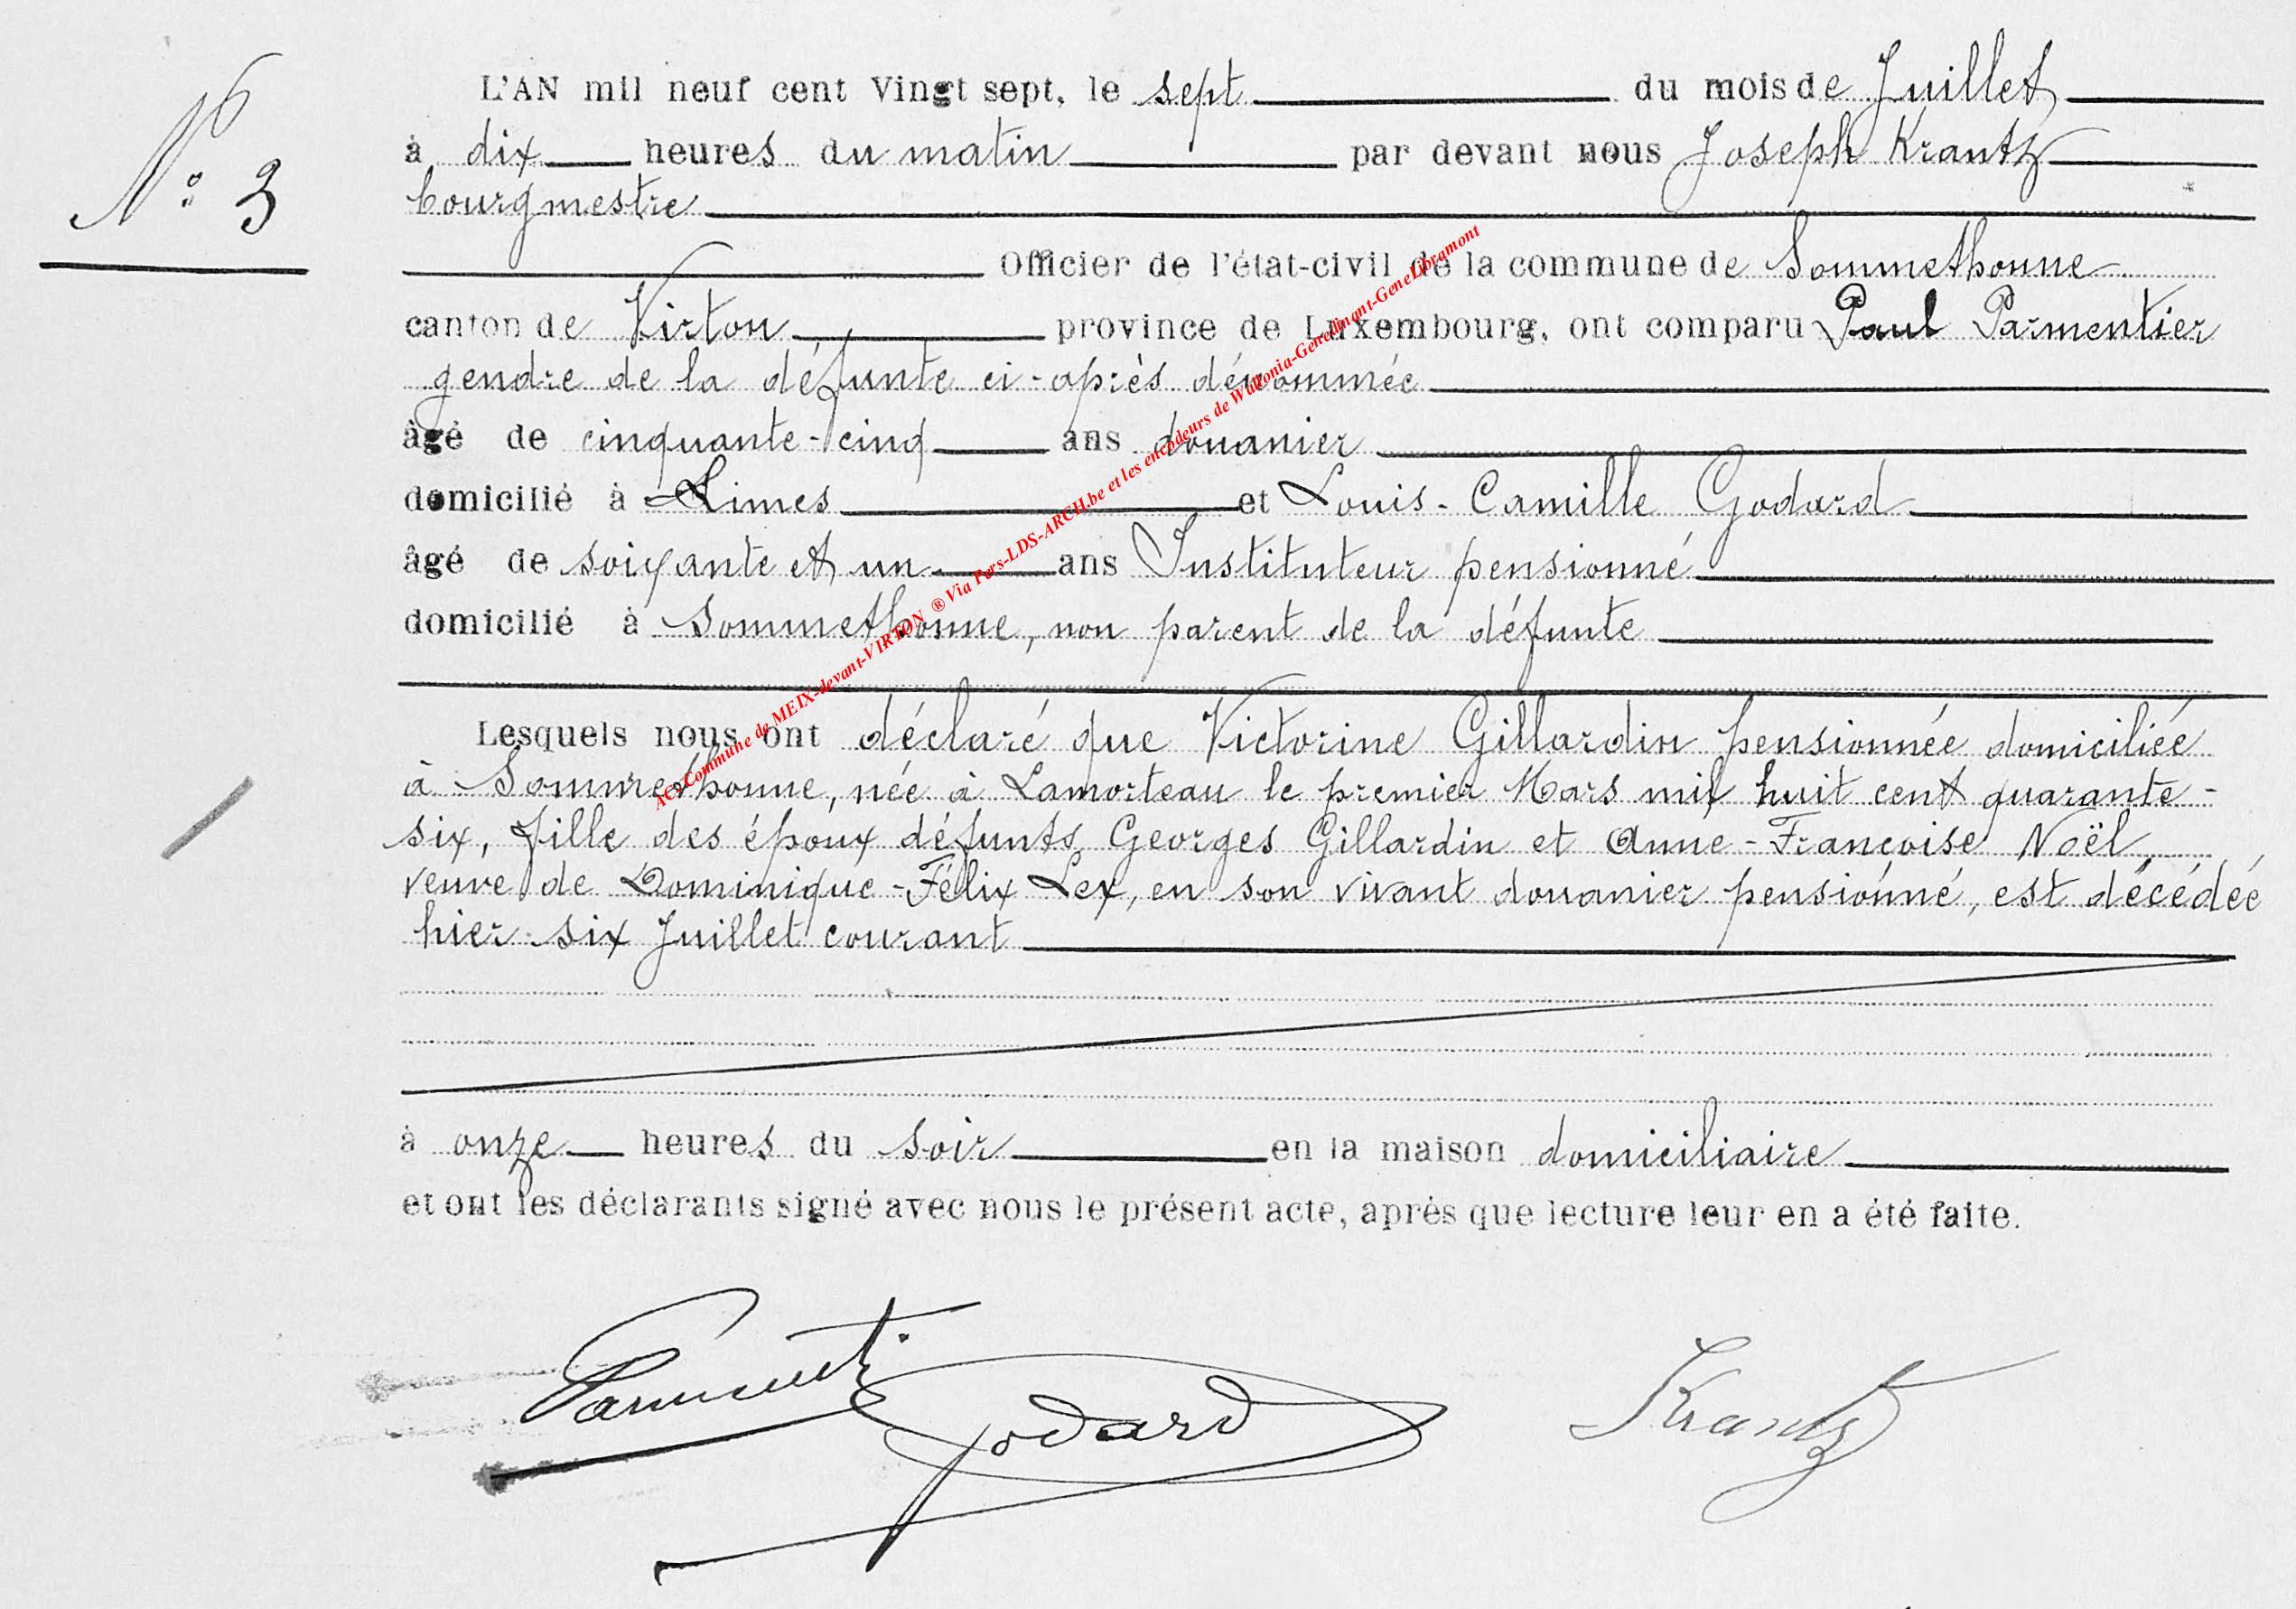 N° 3
L'AN mil neuf cent Vingt sept, le sept du mois de Juillet
à dix heures du matin par devant nous Joseph Krantz
bourgmestre
Officier de l'état-civil de la commune de Sommethonne
canton de Virton province de Luxembourg, ont comparu Paul Parmentier
gendre de la défunte ci-après dénommée
âgé de cinquante-cinq ans douanier
domicilié à Limes et Louis-Camille Godard
âgé de soixante et un ans Instituteur pensionné
domicilié à Sommethonne, non parent de la défunte
Lesquels nous ont déclaré que Victorine Gillardin pensionnée domiciliée
à Sommethonne, née à Lamorteau le premier Mars mil huit cent quarante-
six, fille des époux défunts Georges Gillardin et Anne-Françoise Noël,
veuve de Dominique-Félix Lex, en son vivant douanier pensionné, est décédée
hier six Juillet courant
à onze heures du soir en la maison domiciliaire
et ont les déclarants signé avec nous le présent acte, après que lecture leur en a été faite.
Godard Krantz
Commune de MEIX-devant-VIRTON ® Via Pers-LDS-ARCH.be et les encodeurs de Wallonia-Genedinant-GeneLibramont